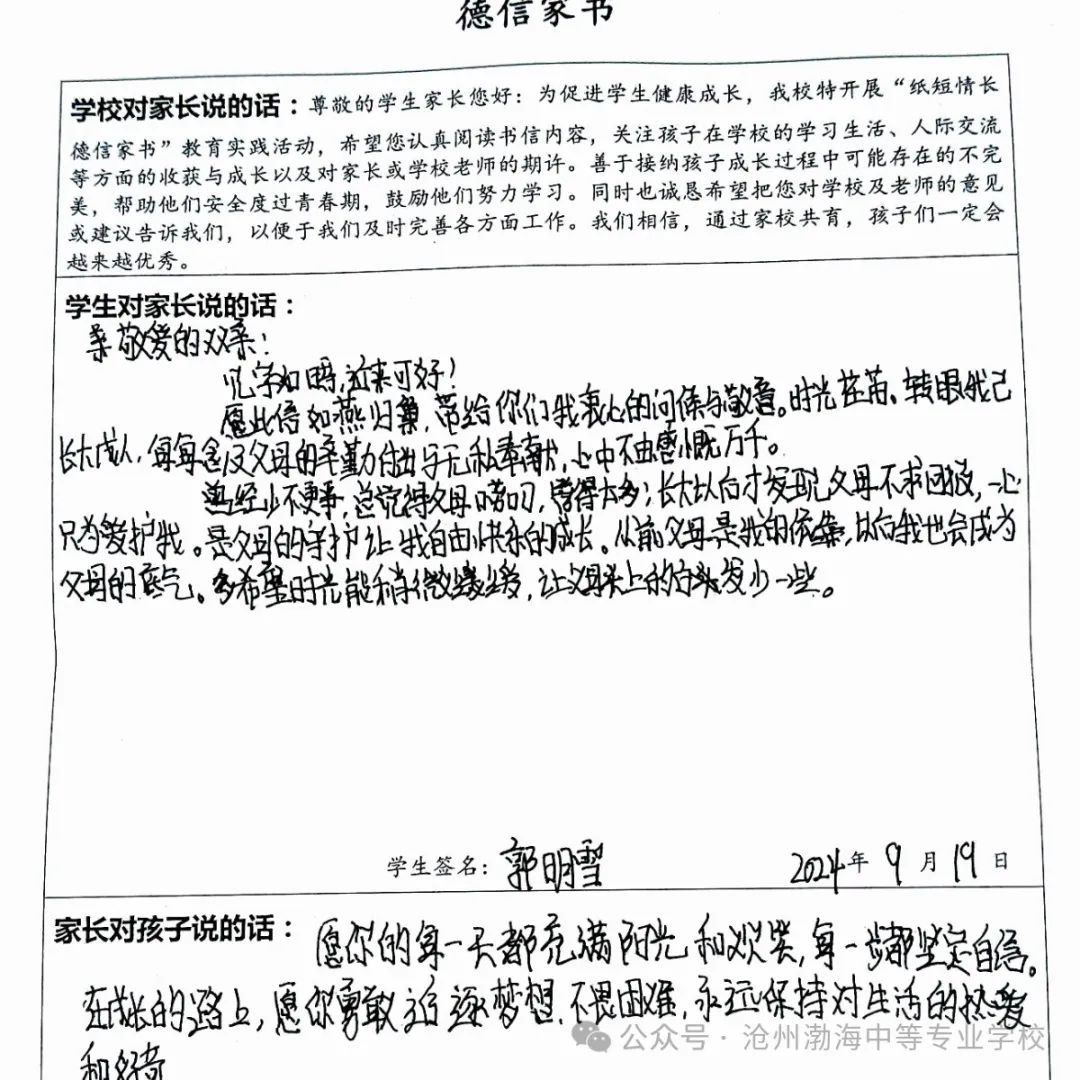 德信家书
学校对家长说的话：尊敬的学生家长您好：为促进学生健康成长，我校特开展“纸短情长
德信家书”教育实践活动，希望您认真阅读书信内容，关注孩子在学校的学习生活、人际交流
等方面的收获与成长以及对家长或学校老师的期许。善于接纳孩子成长过程中可能存在的不完
美，帮助他们安全度过青春期，鼓励他们努力学习。同时也诚恳希望把您对学校及老师的意见
或建议告诉我们，以便于我们及时完善各方面工作。我们相信，通过家校共育，孩子们一定会
越来越优秀。
学生对家长说的话：
亲敬爱的双亲：
见字如晤，近来可好！
愿此信如燕归巢，带给你们我衷心的问候与敬意。时光荏苒、转眼我已
长大成人，每每念及父母的辛勤付出与无私奉献，心中不由感慨万千。
曾经少不更事，总觉得父母唠叨，管得太多；长大以后才发现父母不求回报，一心
只为爱护我。是父母的守护让我自由快乐的成长。从前父母是我的依靠，以后我也会成为
父母的底气。多希望时光能稍微缓缓，让父母头上的白头发少一些。
学生签名：郭明雪 2024年9月19日
家长对孩子说的话：愿你的每一天都充满阳光和欢笑，每一步都坚定自信。
在成长的路上，愿你勇敢追逐梦想，不畏困难，永远保持对生活的热爱
和好奇
公众号·沧州渤海中等专业学校